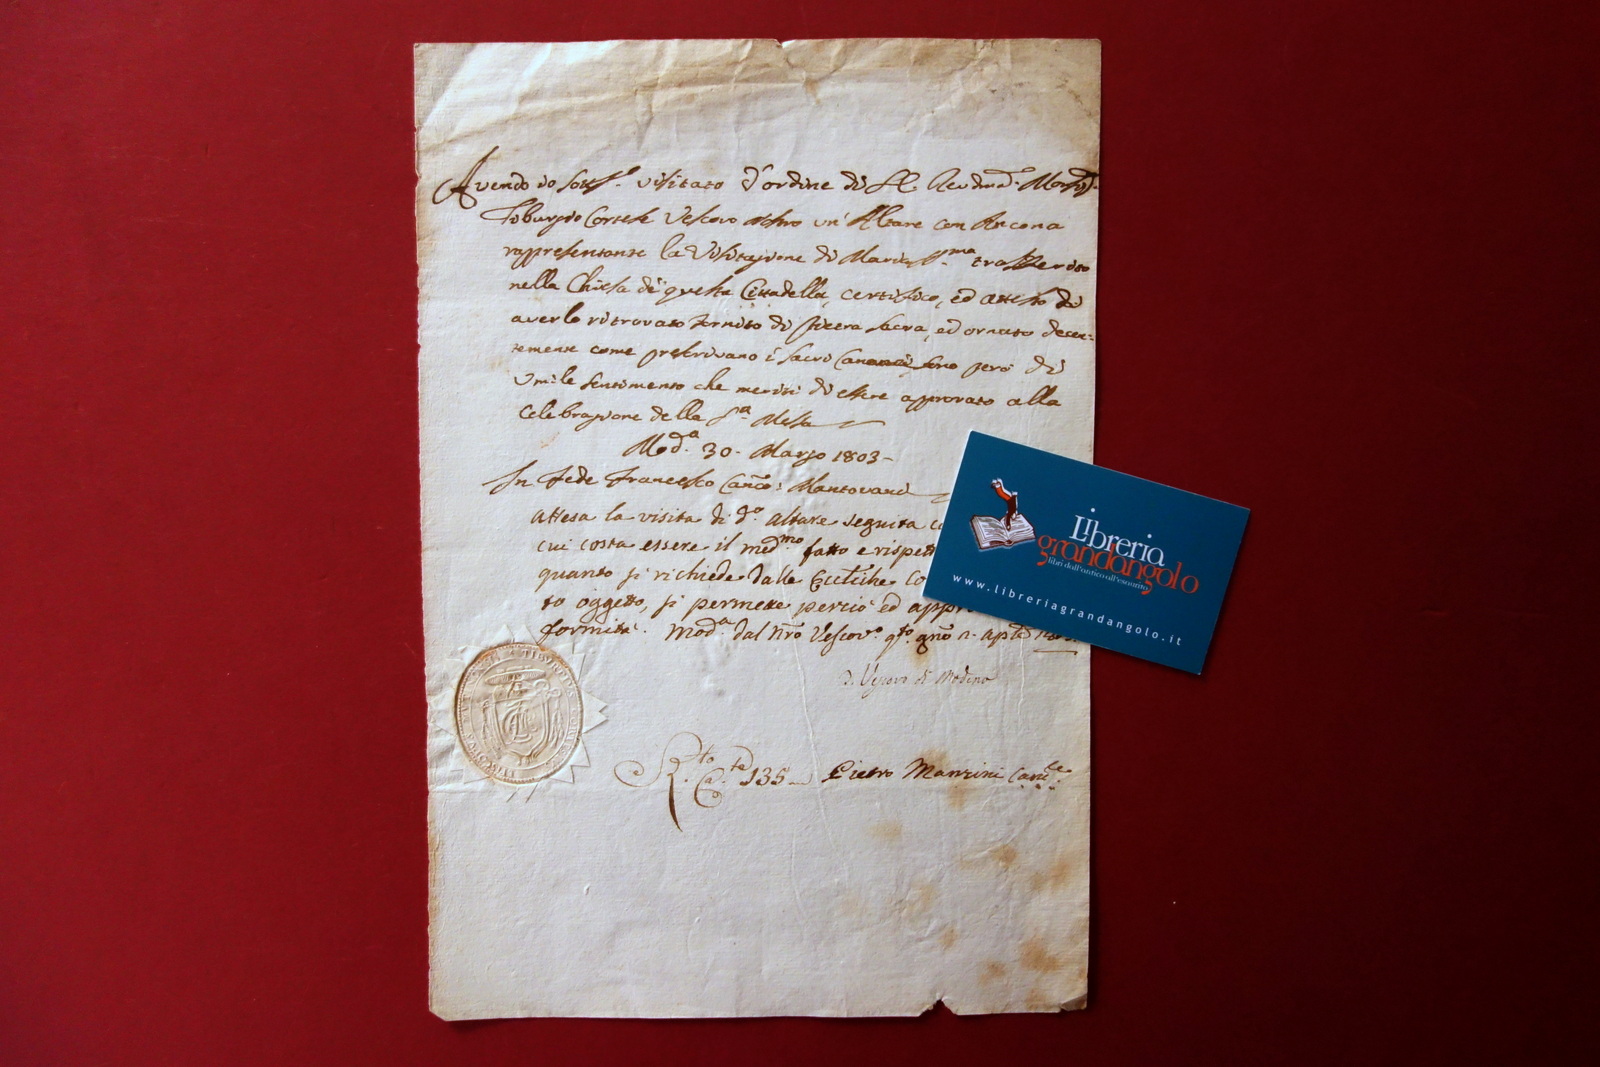 Avendo io Sott.º visitato d'ordine di S.E. Revdma. Monsig.
Tiburzio Cortese Vescovo nostro un'Altare con Ancona
rappresentante la Visitazione di Maria S.ma trasferito
nella Chiesa di questa Cittadella, certifico, ed attesto di
averlo ritrovato fornito di Pietra Sacra, ed ornato decen=
temente come prescrivano i sacri Canoni, sono però di
umile sentimento che meriti di essere approvato alla
Celebrazione della S.a Messa
Mod.a 30. Marzo 1803-
In Fede Francesco Cance: Mantovani
Attesa la visita di d.o altare seguita
cui costa essere il med.mo fatto e
quanto si richiede dalle
to oggetto, si permette perciò ed
formità. Mod.a dal Nro Vescov.o
Vescovo di Modena
R.to Ca.te 135 Pietro Manzini Canc.re
TIBURTIUS
Libreria
grandangolo
libri dall'antico all'esaurito
www.libreriagrandangolo.it